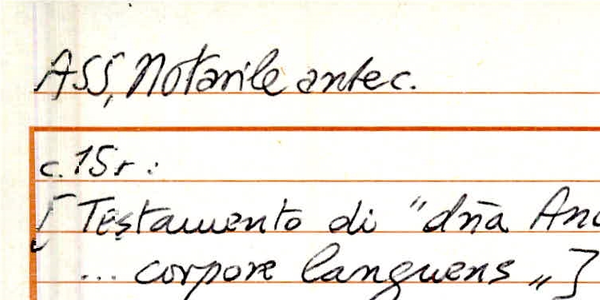 ASS, Notarile antec.
c. 15r:
[Testamento di "dña Anc
... corpore languens"]